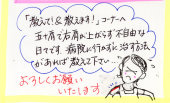 「教えて!&教えます!」コーナーへ
五十肩で右肩が上がらず不自由な
日々です。病院に行かずに治す方法
があれば教えて下さい…
よろしくお願い
いたします